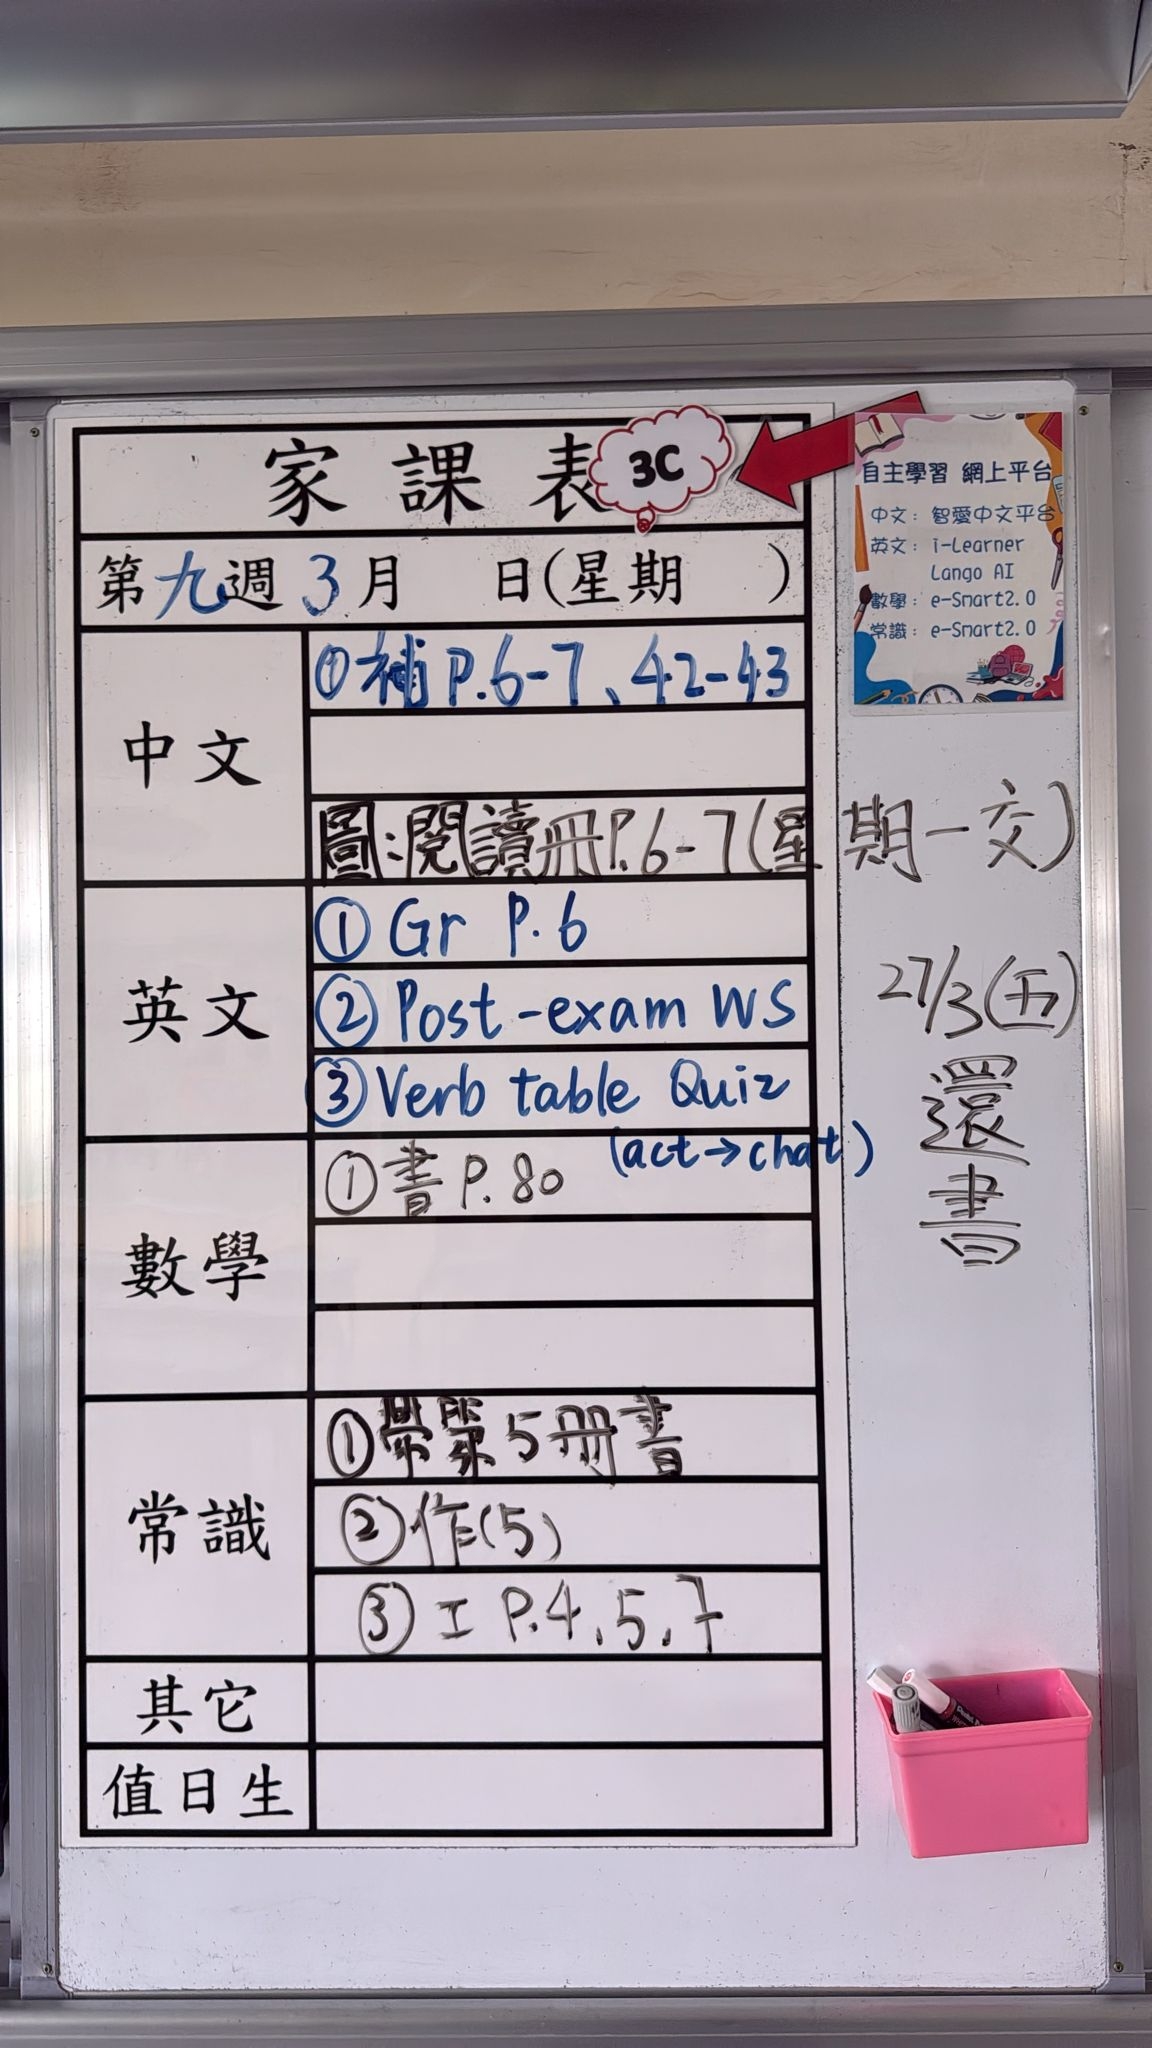 家課表 3C
第九週 3月 日(星期 )
中文
①補P.6-7、42-43
圖:閱讀冊P.6-7(星期一交)
英文
① Gr P.6
② Post-exam WS
③ Verb table Quiz
(act→chat)
數學
①書P.80
常識
①帶第5冊書
②作(5)
③工 P.4,5,7
其它
值日生
自主學習 網上平台
中文: 智愛中文平台
英文: i-Learner
Lango AI
數學: e-Smart2.0
常識: e-Smart2.0
27/3(五)
還
書